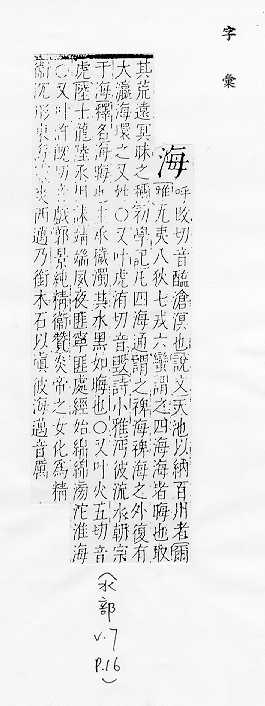 字彙
海 呼改切音醢滄溟也說文天池以納百川者爾
雅九夷八狄七戎六蠻謂之四海海者晦也取
其荒遠冥昧之稱初學記凡四海通謂之裨海裨海之外復有
大瀛海環之又姓〇又叶虎洧切音毀詩小雅沔彼流水朝宗
于海釋名海晦也主承穢濁其水黑如晦也〇又叶火五切音
虎陸士龍陸丞相誄靖端夙夜匪寧匪處經始綿綿湯沱淮海
〇又叶許既切音戲郭景純精衛贊炎帝之女化為精
衛沉形東海靈爽西邁乃銜木石以塡彼海邁音厲
(水部
v.7
P.16)